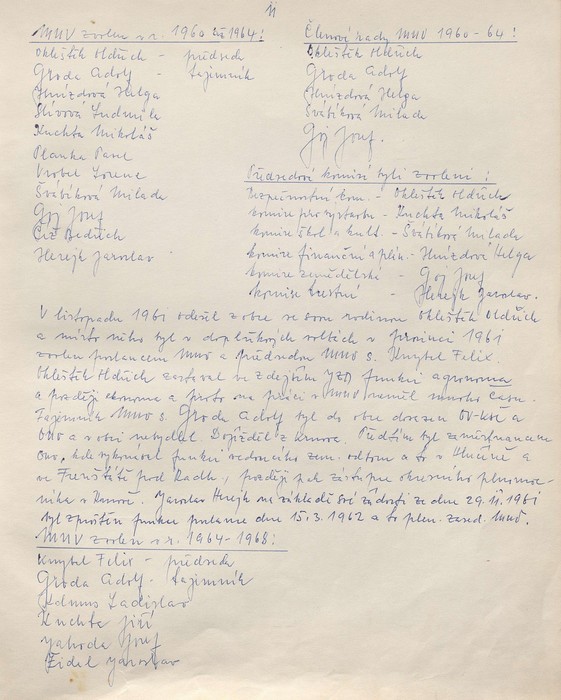 11
MNV zvolen v r. 1960 až 1964:
Okleštěk Oldřich - předseda
Groda Adolf - tajemník
Hnízdová Helga
Slívová Ludmila
Kuchta Mikoláš
Planka Pavel
Vrobel Lorenc
Švábíková Milada
Goj Josef
Číž Bedřich
Herejk Jaroslav
Členové rady MNV 1960-64:
Okleštěk Oldřich
Groda Adolf
Hnízdová Helga
Švábíková Milada
Goj Josef.
Předsedové komisí byli zvoleni:
Bezpečnostní kom. - Okleštěk Oldřich
komise pro výstavbu - Kuchta Mikoláš
komise škol. a kult. - Švábíková Milada
komise finanční a plán. - Hnízdová Helga
komise zemědělská - Goj Josef
komise trestní - Herejk Jaroslav.
V listopadu 1961 odešel z obce se svou rodinou Okleštěk Oldřich
a místo něho byl v doplňkových volbách v prosinci 1961
zvolen poslancem MNV a předsedou MNV s. Knybel Felix.
Okleštěk Oldřich zastával ve zdejším JZD funkci agronoma
a později ekonoma a proto na práci v MNV neměl mnoho času.
Tajemník MNV s. Groda Adolf byl do obce dosazen OV-KSČ a
ONV a v obci nebydlel. Dojížděl z Kunova. Předtím byl zaměstnancem
ONV, kde vykonával funkci vedoucího zem. odboru a to v Hlučíně a
ve Frenštátě pod Radh., později pak zástupce okresního plnomoc-
níka v Kunově. Jaroslav Herejk na základě své žádosti ze dne 29.11.1961
byl zproštěn funkce poslance dne 15.3.1962 a to plen. zased. MNV.
MNV zvolen v r. 1964-1968:
Knybel Felix - předseda
Groda Adolf - tajemník
Ladislav
Kuchta Jiří
Jahoda Josef
Židel Jaroslav